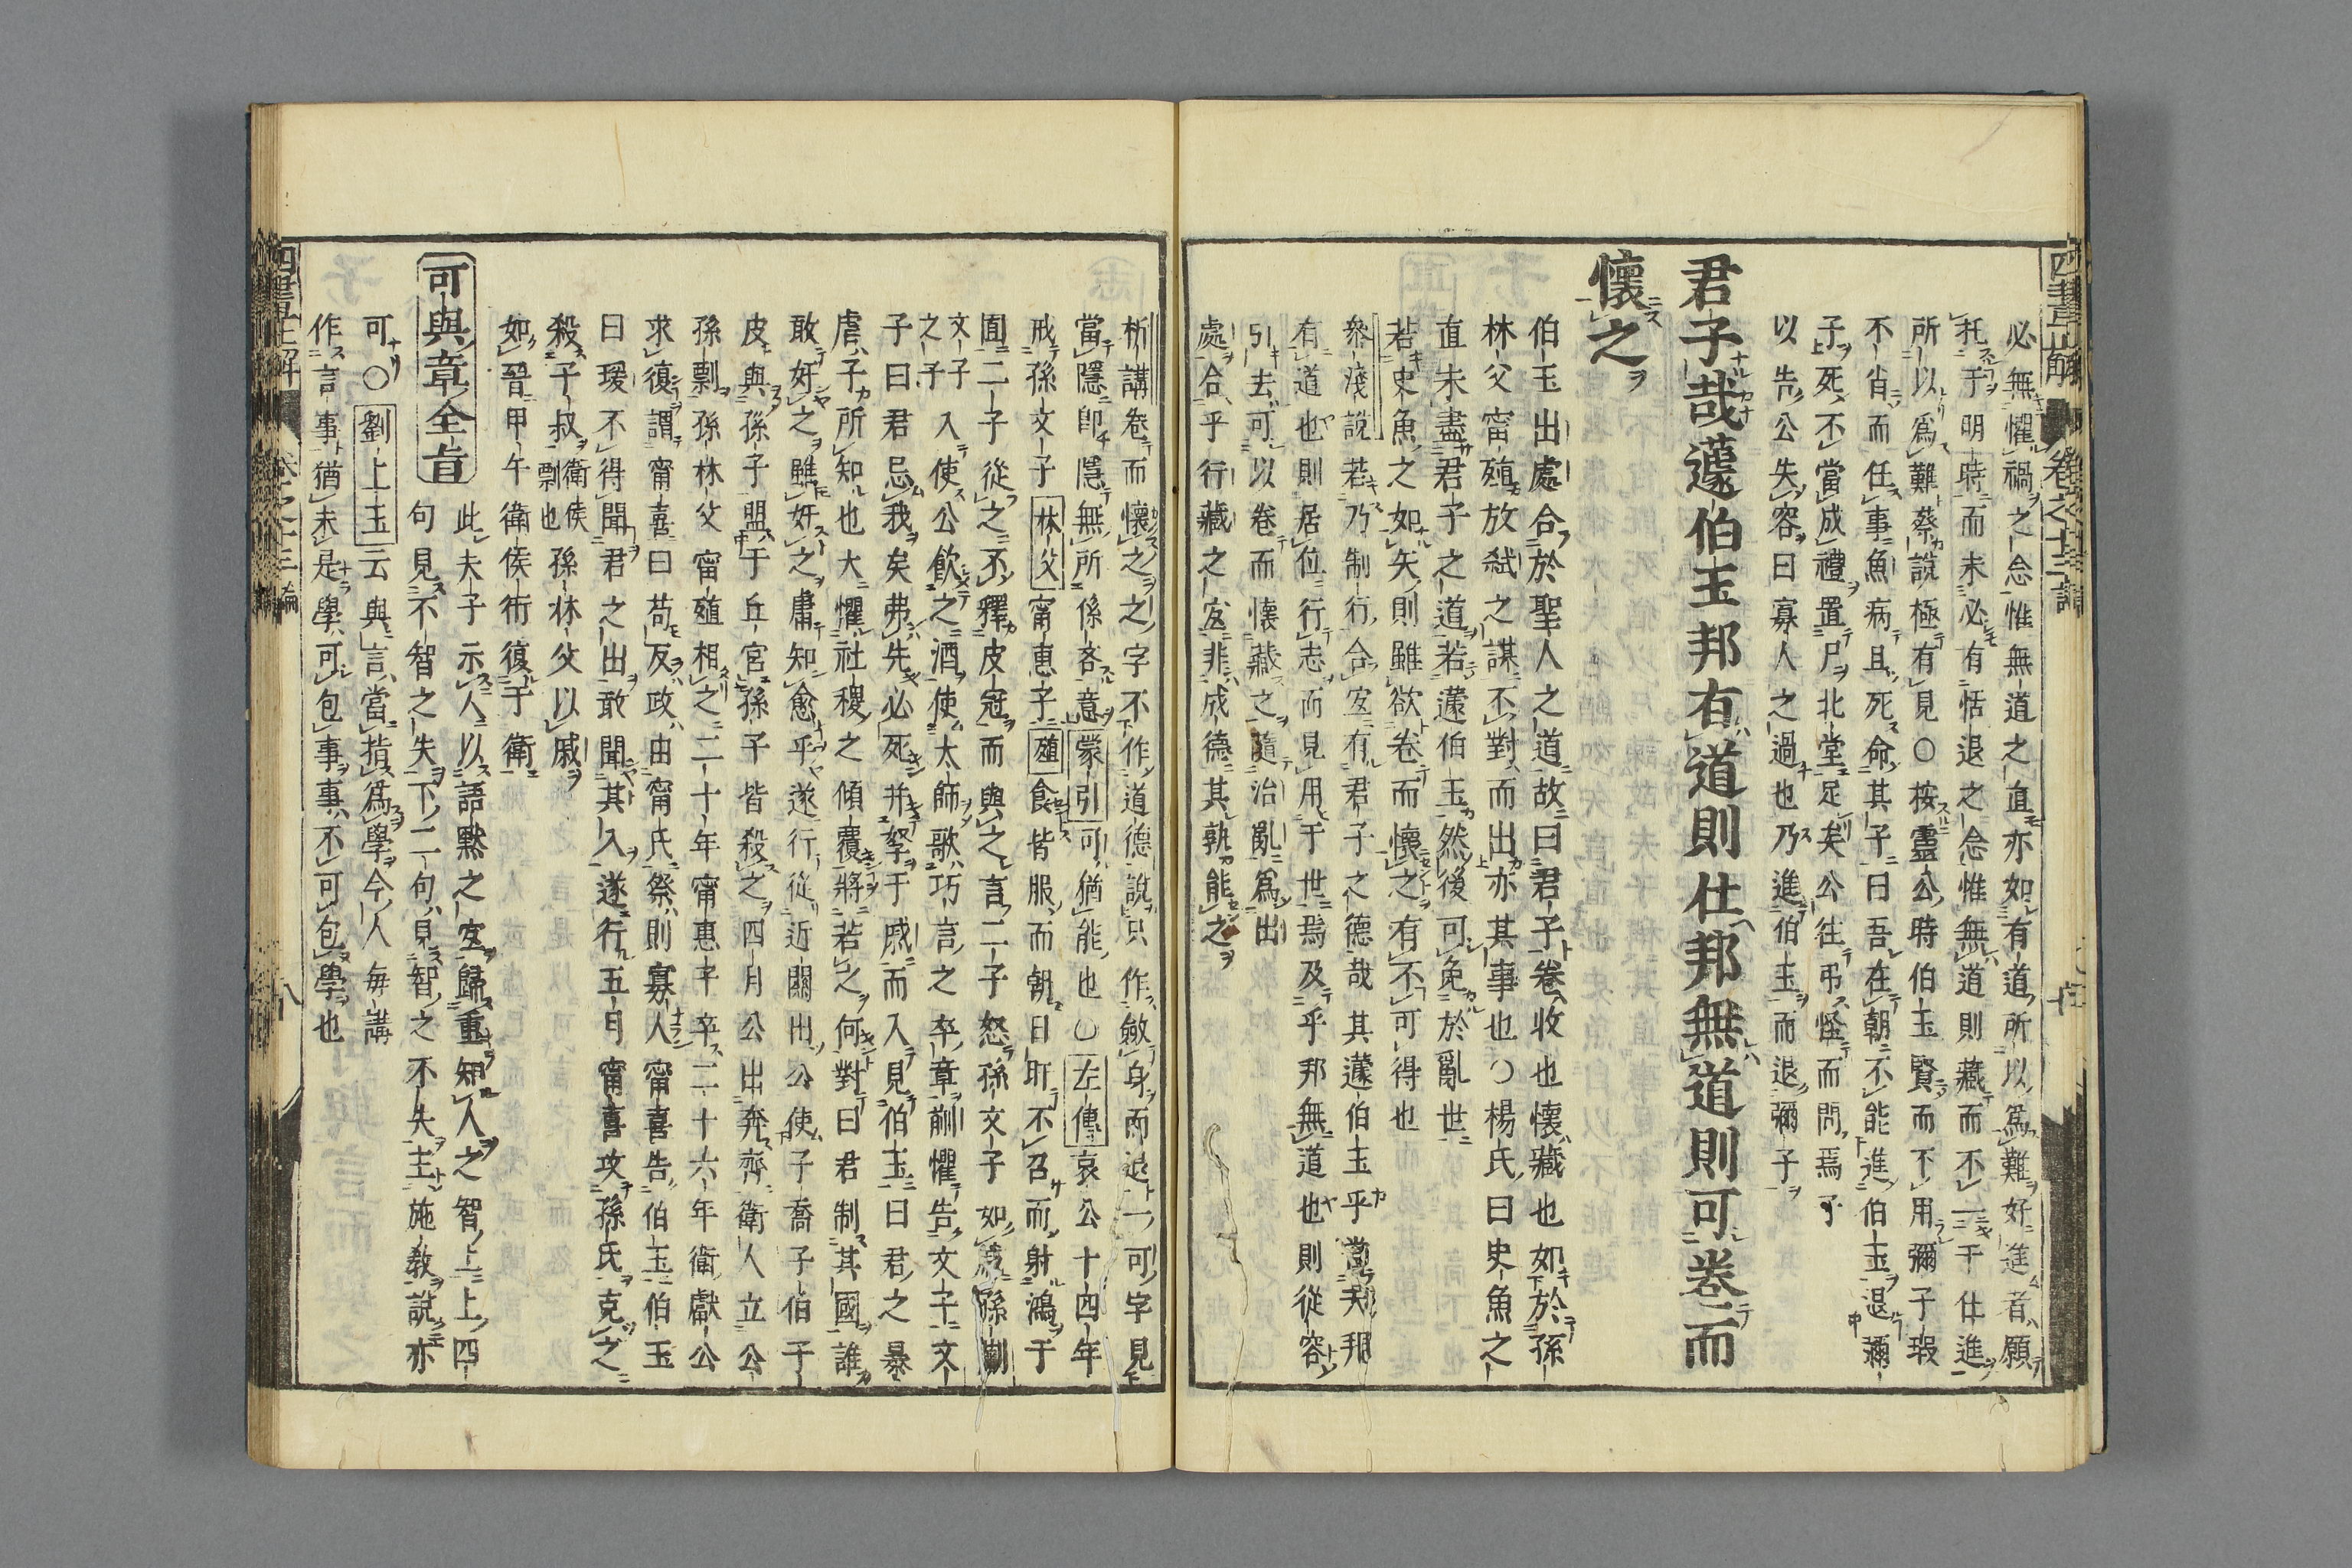 必無懼禍之念惟無道之直亦如有道所以爲難好進者願
托于明時而未必有恬退之念惟無道則藏而不一于仕進
所以爲難蔡說極有見○按靈公時伯玉賢而不用彌子瑕
不肖而任事魚病且死命其子曰吾在朝不能進伯玉退彌
子死不當成禮置尸北堂足矣公往弔怪而問焉子
以告公失容曰寡人之過也乃進伯玉而退彌子
君子哉蘧伯玉邦有道則仕邦無道則可卷而
懷之
伯玉出處合於聖人之道故曰君子卷收也懷藏也如於孫
林父甯殖放弑之謀不對而出亦其事也○楊氏曰史魚之
直未盡君子之道若蘧伯玉然後可免於亂世
若史魚之如矢則雖欲卷而懷之有不可得也
參淺說若乃制行合宜有君子之德哉其蘧伯玉乎當夫邦
有道也則居位行志而見用于世焉及乎邦無道也則從容
引去可以卷而懷藏之隨治亂爲出
處合乎行藏之宜非成德其孰能之
析講卷而懷之之字不作道德說只作斂身而退一可字見
當隱卽隱無所係吝意蒙引可猶能也○左傳哀公十四年
戒孫文子林父甯惠子殖食皆服而朝日旰不召而射鴻于
囿二子從之不釋皮冠而與之言二子怒孫文子如戚孫蒯
文子
之子入使公飲之酒使太師歌巧言之卒章蒯懼告文子文
子曰君忌我矣弗先必死并帑于戚而入見伯玉曰君之暴
虐子所知也大懼社稷之傾覆將若之何對曰君制其國誰
敢奸之雖奸之庸知愈乎遂行從近關出公使子喬子伯子
皮與孫子盟于丘宮孫子皆殺之四月公出奔齊衛人立公
孫剽孫林父甯殖相之二十年甯惠子卒二十六年衛獻公
求復謂甯喜曰苟反政由甯氏祭則寡人甯喜告伯玉伯玉
曰瑗不得聞君之出敢聞其入遂行五月甯喜攻孫氏克之
殺子叔衛侯
剽也孫林父以戚
如晉甲午衛侯衎復于衛
可與章全旨
此夫子示人以語默之宜歸重知人之智上上四
句見不智之失下二句見智之不失主施教說亦
可○劉上玉云與言當指爲學今人每講
作言事猶未是學可包事事不可包學也
四書正解
卷之十三